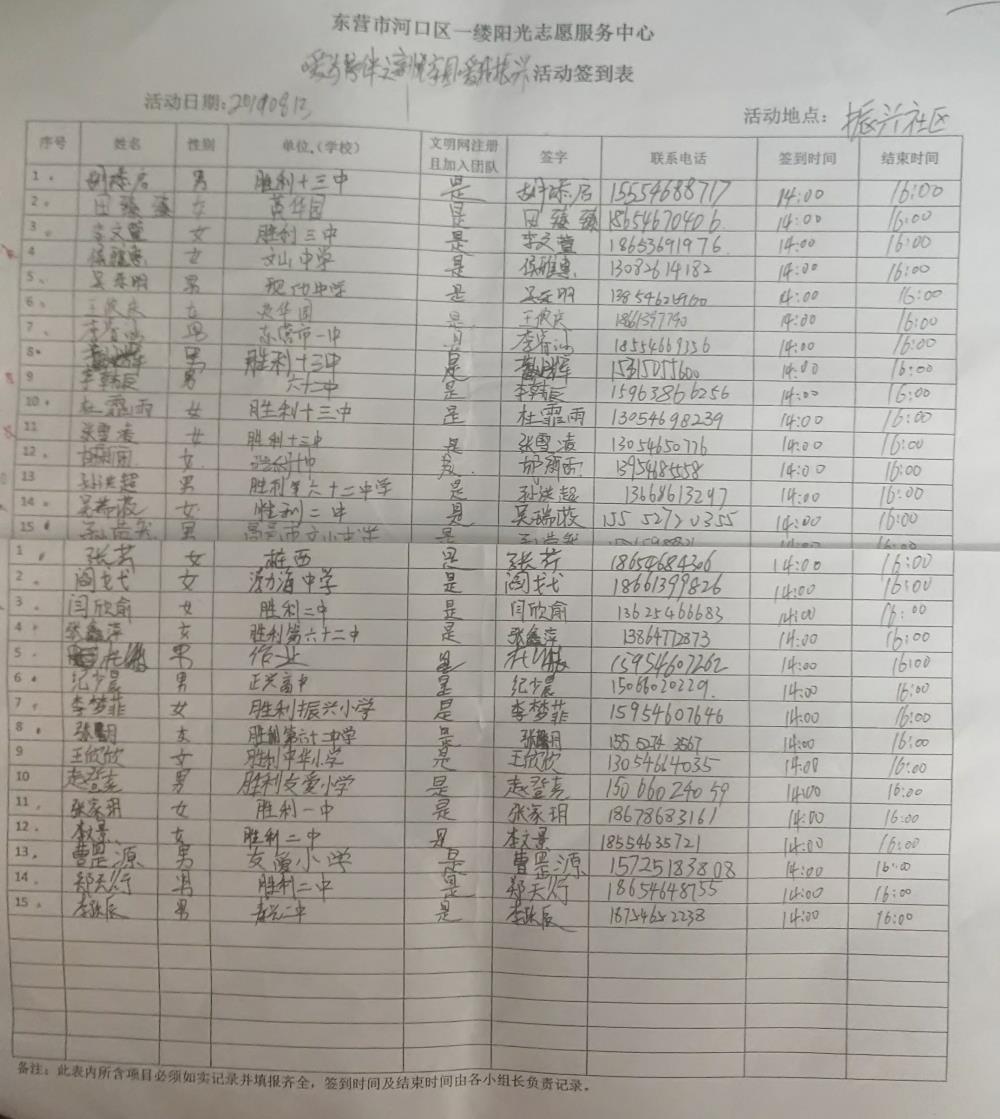 东营市河口区一缕阳光志愿服务中心
活动签到表
活动日期:20190813 活动地点: 振兴社区
序号 姓名 性别 单位(学校) 文明网注册且加入团队 签字 联系电话 签到时间 结束时间
1. 男 胜利十三中 是 15554688717 14:00 16:00
2. 田臻臻 女 英华园 是 田臻臻 18654670406 14:00 16:00
3. 李文萱 女 胜利三中 是 李文萱 18653691976 14:00 16:00
4 侯雅惠 女 文山中学 是 侯雅惠 13082614182 14:00 16:00
5、 男 现代中学 是 14:00 16:00
6、 女 英华园 是 14:00 16:00
7、 男 东营市一中 是 18554669336 14:00 16:00
8. 男 胜利十三中 是 15315055600 14:00 16:00
9 李韩辰 男 六十二中 是 李韩辰 15963866256 14:00 16:00
10. 杜霏雨 女 胜利十三中 是 杜霏雨 13054698239 14:00 16:00
11 张雪凌 女 胜利十三中 是 张雪凌 13054650776 14:00 16:00
12. 女 是 13954685558 14:00 16:00
13 孙洪超 男 胜利第六十二中学 是 孙洪超 13668613297 14:00 16:00
14. 吴瑞波 女 胜利二中 是 吴瑞波 155 5272 0355 14:00 16:00
15 男
1 张芳 女 桩西 是 张芳 18654684306 14:00 16:00
2. 阎戈弋 女 渤海中学 是 阎戈弋 18661399826 14:00 16:00
3. 闫欣俞 女 胜利二中 是 闫欣俞 13625466683 14:00 16:00
4. 张鑫萍 女 胜利第六十二中 是 张鑫萍 13864772873 14:00 16:00
5. 男 作业 是 15954607262 14:00 16:00
6. 纪少晨 男 正兴高中 是 纪少晨 15066020229. 14:00 16:00
7, 李梦菲 女 胜利振兴小学 是 李梦菲 15954607646 14:00 16:00
8. 女 胜利第六十二中学 是 155 5274 3567 14:00 16:00
9 王欣欣 女 胜利中华小学 是 王欣欣 13054664035 14:00 16:00
10 赵登尧 男 胜利友爱小学 是 赵登尧 15066024059 14:00 16:00
11. 张家玥 女 胜利一中 是 张家玥 18678683161 14:00 16:00
12. 李文景 女 胜利二中 是 李文景 18554635721 14:00 16:00
13, 曹罡源 男 友爱小学 是 曹罡源 15725183808 14:00 16:00
14. 郑天行 男 胜利二中 是 郑天行 18654648755 14:00 16:00
15. 男 是 14:00 16:00
备注:此表内所含项目必须如实记录并填报齐全,签到时间及结束时间由各小组长负责记录。